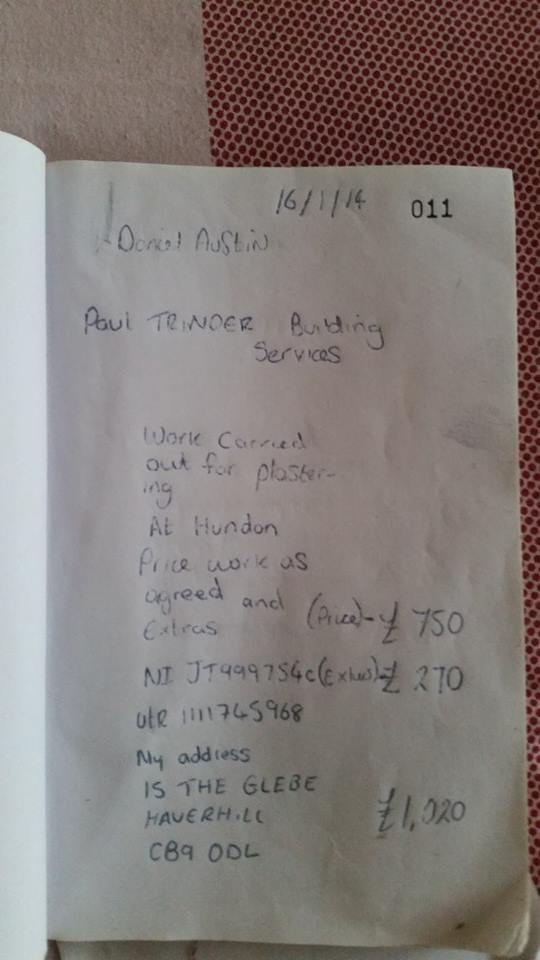 16/1/14 011
Daniel Austin
Paul TRINDER Building
Services
Work Carried
out for plaster-
ing
At Hundon
Price work as
agreed and (Price)- £ 750
Extras
NI JT999754C (Extras)- £ 270
UtR 1111745968
My address
15 THE GLEBE
HAVERHILL
£1,020
CB9 0DL